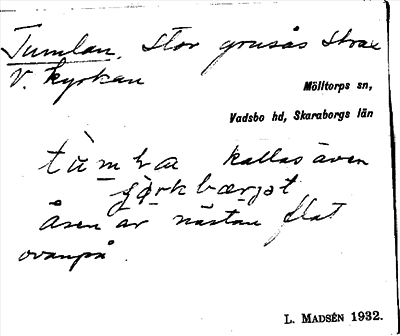 Tumlan. Stor grusås strax
V. kyrkan
Mölltorps sn,
Vadsbo hd, Skaraborgs län
kallas även
Åsen är nästan flat
ovanpå.
L. MADSÉN 1932.